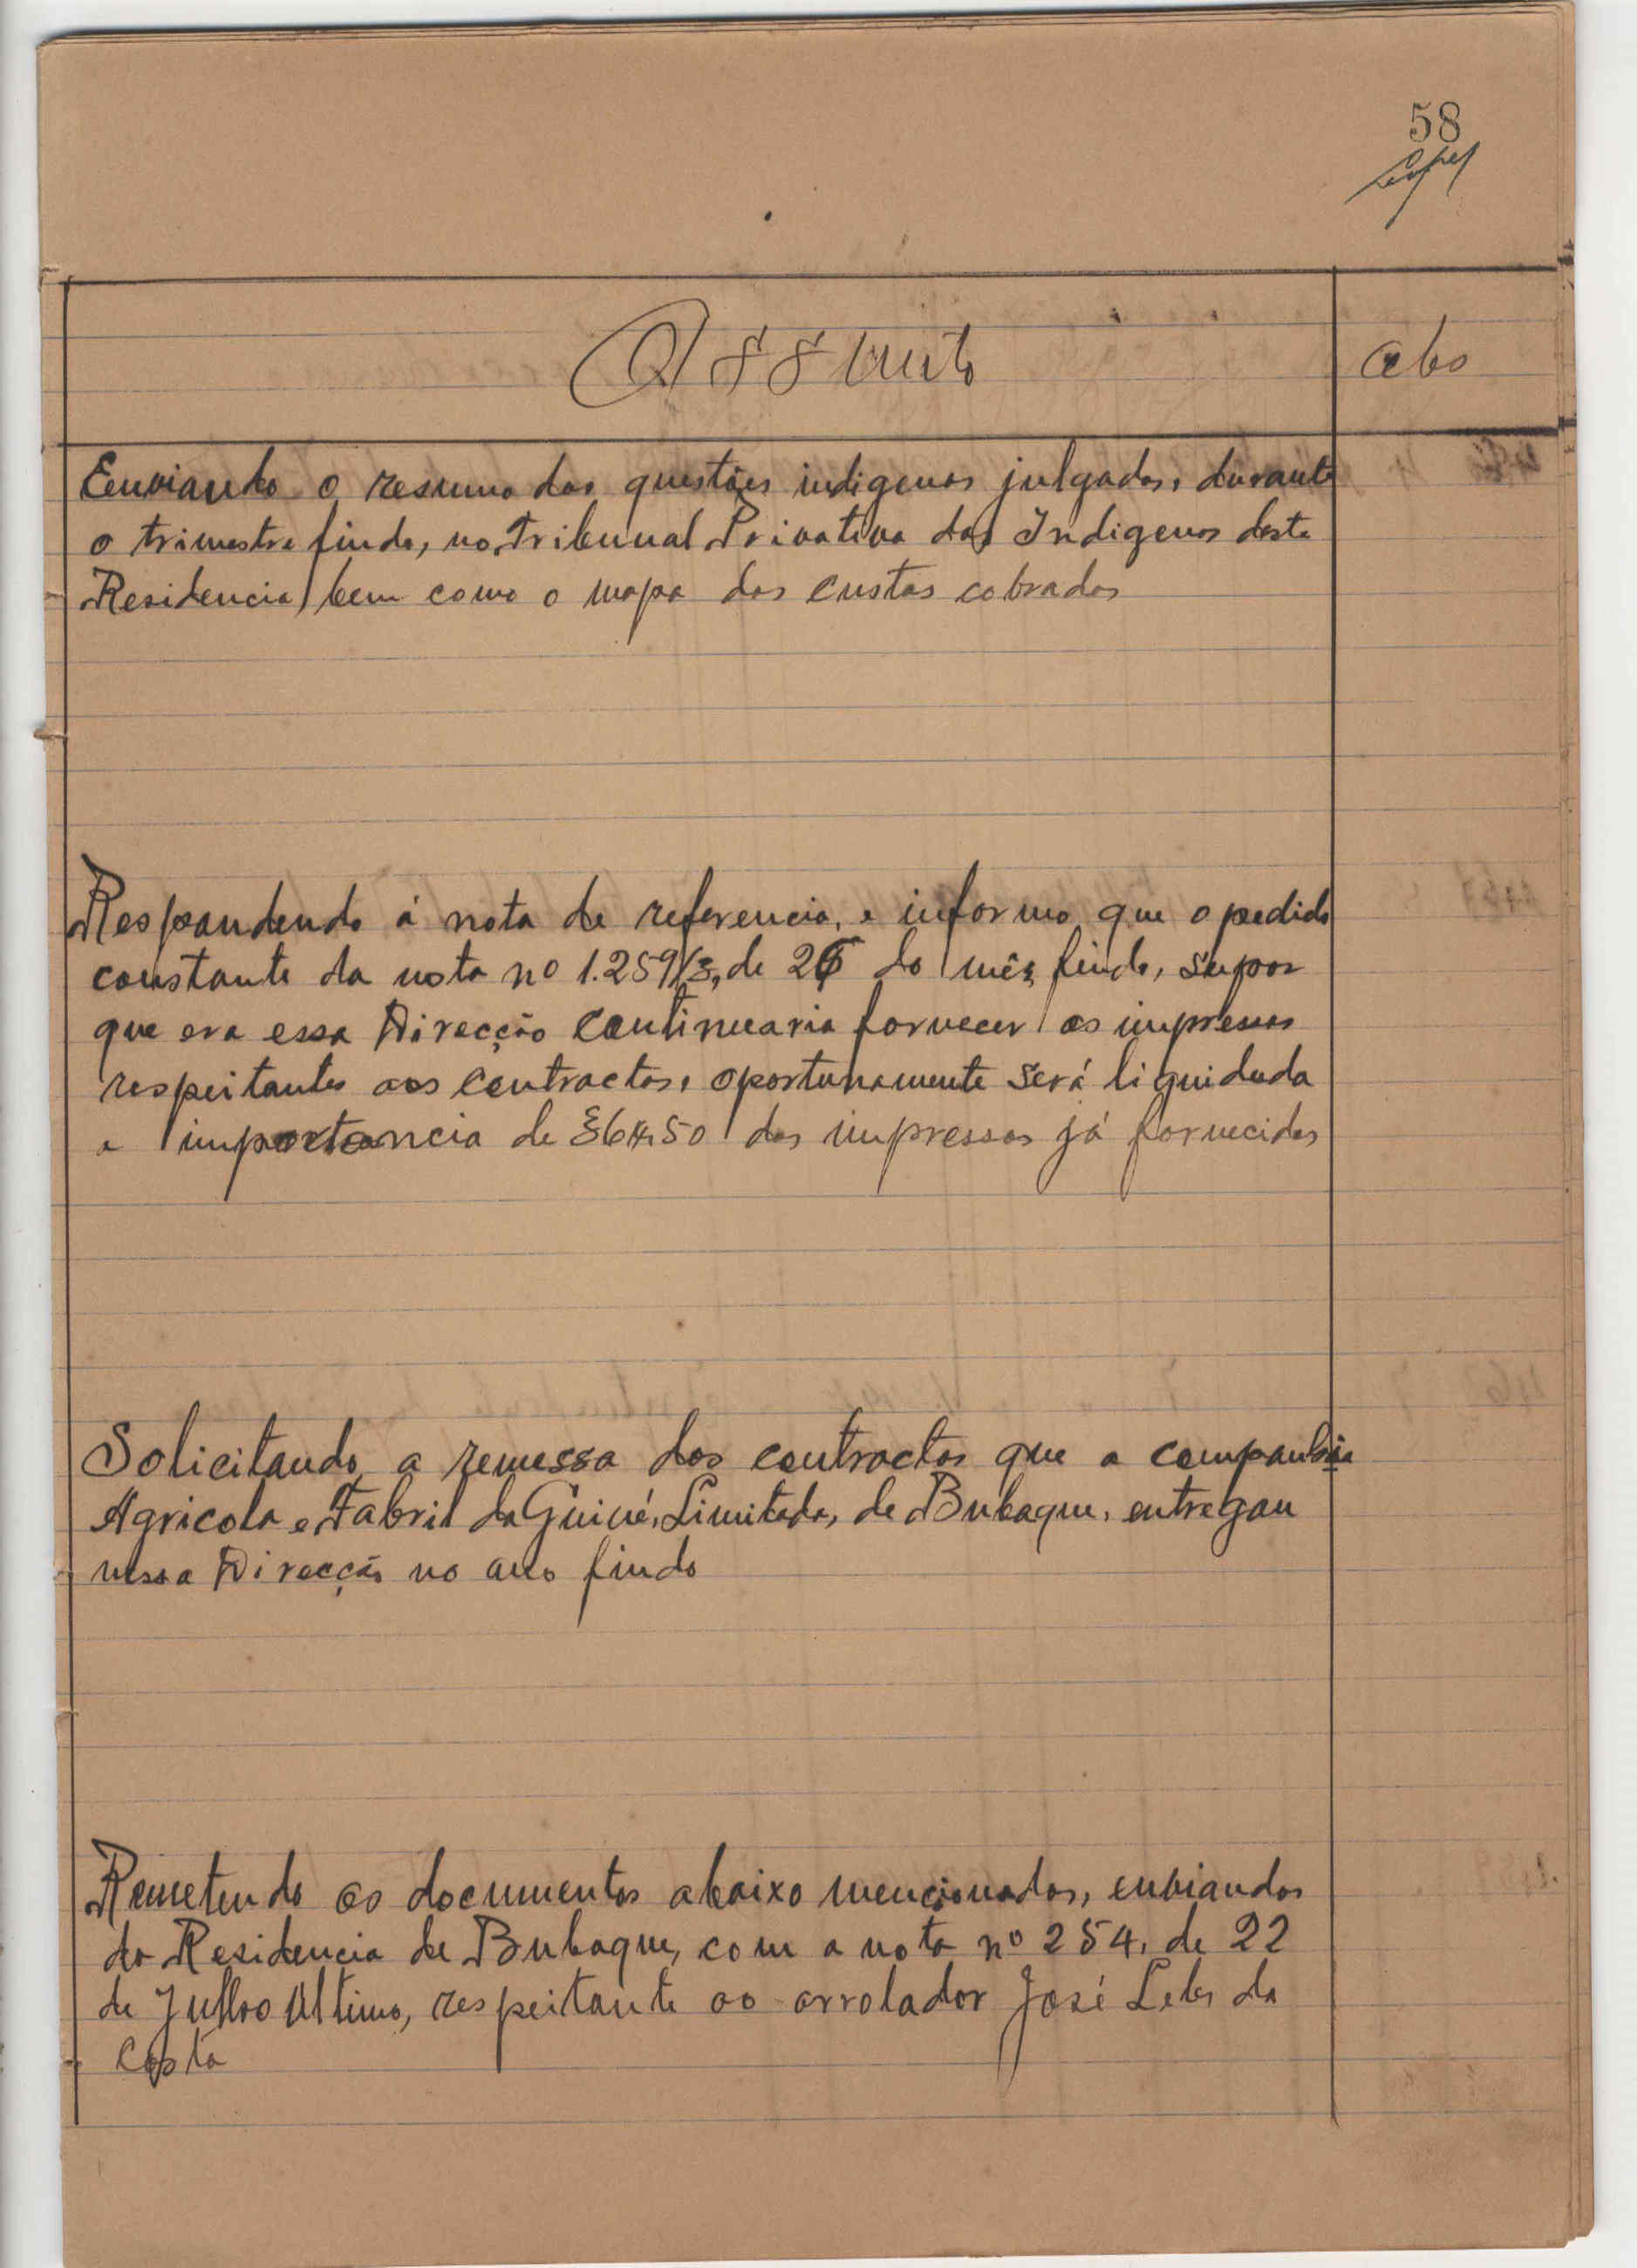 58
Assunto
Obs
Enviando o resumo das questões indigenas julgadas, durante
o trimestre findo, no Tribunal Privativo dos Indigenas desta
Residencia, bem como o mapa das custas cobradas
Respondendo á nota de referencia, e informo que o pedido
constante da nota nº 1.259/3, de 26 do mês findo, supor
que era essa Direcção continuaria fornecer os impressos
respeitantes aos contractos, oportunamente será liquidada
a importancia de 36$50 dos impressos já fornecidos
Solicitando a remessa dos contractos que a companhia
Agricola e Fabril da Guiné, Limitada, de Bubaque, entregou
nessa Direcção no ano findo
Remetendo os documentos abaixo mencionados, enviandos
da Residencia de Bubaque, com a nota nº 254, de 22
de Julho Ultimo, respeitante ao arrolador José Lelis da
Costa